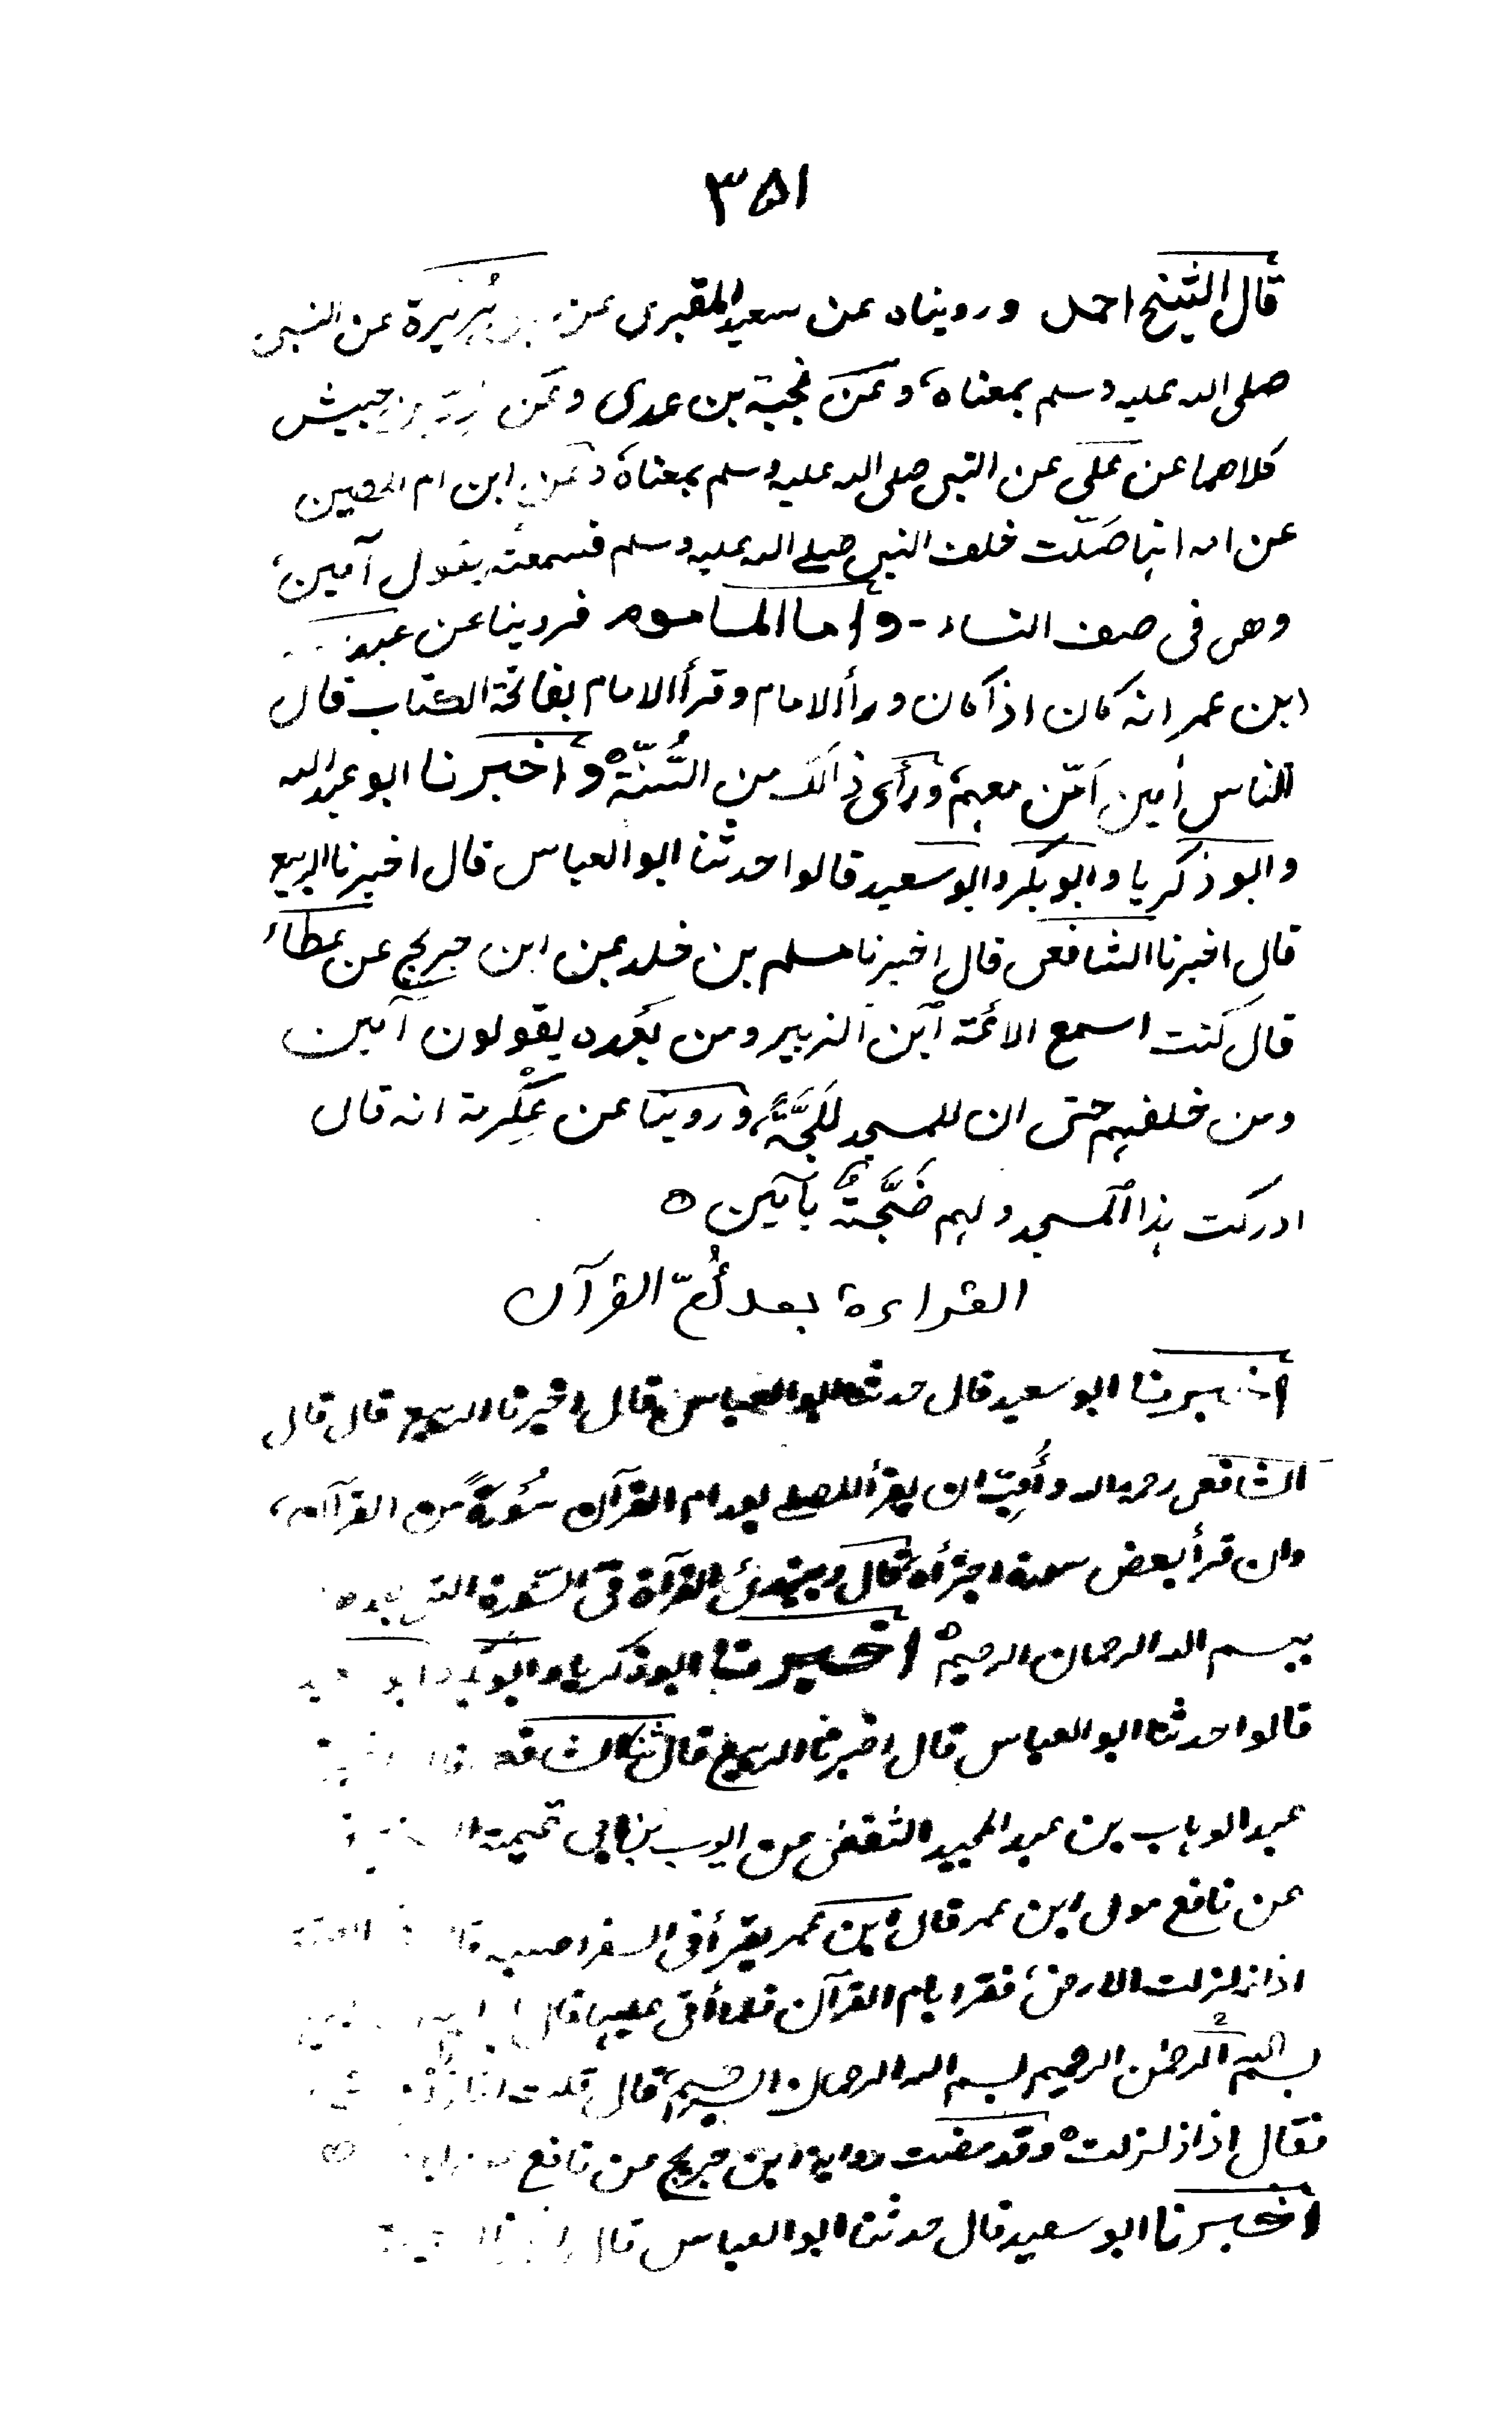 ٣٥١
قال الشيخ احمد ورويناه عن سعيد المقبرى عن هريرة عن النبى
صلى الله عليه وسلم بمعناه، وعن حجية بن عدى وعن حبيش
كلاهما عن على عن النبى صلى الله عليه وسلم بمعناه وعن ابن ام الحصين
عن امه انها صلّت خلف النبى صلى الله عليه وسلم فسمعته يقول آمين،
وهى فى صف النساء - وأما المأموم فروينا عن
ابن عمر انه كان اذا كان وراء الامام وقرأ الامام بفاتحة الكتاب قال
للناس أمين اَمّن معهم، ورأى ذالك من السُّنّة ه وأخبرنا ابو عبد الله
وابو ذكريا وابو بكر وابو سعيد قالوا حدثنا ابو العباس قال اخبرنا الربيع
قال اخبرنا الشافعى قال اخبرنا مسلم بن خلد عن ابن جريج عن عطاء
قال كنت اسمع الائمة ابن الزبير ومن بعده يقولون آمين
ومن خلفهم حتى ان للمسجد لَلَجَّةً، وروينا عن عِكْرمة انه قال
ادركت هذا المسجد ولهم ضَجَّةٌ بآمين ه
القراءة بعد أُمّ القرآن
أخبرنا ابو سعيد قال حدثنا ابو العباس قال اخبرنا الربيع قال قال
الشافعى رحمه الله وأُحِبّ ان يقرأ المصلى بعد ام القرآن سُورَةً من القرآن،
وان قرأ بعض سورة اجزأه قال ويبتدئ القرآة فى السّورة التى بعده
بسم الله الرحمان الرحيم ه اخبرنا ابو ذكريا وابو بكر وابو
قالوا حدثنا ابو العباس قال اخبرنا الربيع قال ثنا الشافعى
عبد الوهاب بن عبد المجيد الثقفى عن ايوب بن ابى تميمة
عن نافع مولى ابن عمر قال ابن عمر يقرأ فى السفر احسبه العتمة
اذا زلزلت الارض، فقرا بام القرآن فلما أتى عليها قال
بسم الله الرحمٰن الرحيم بسم الله الرحمان الرحيم، قال قلت
فقال اذا زلزلت ه وقد مضت رواية ابن جريج عن نافع
أخبرنا ابو سعيد قال حدثنا ابو العباس قال